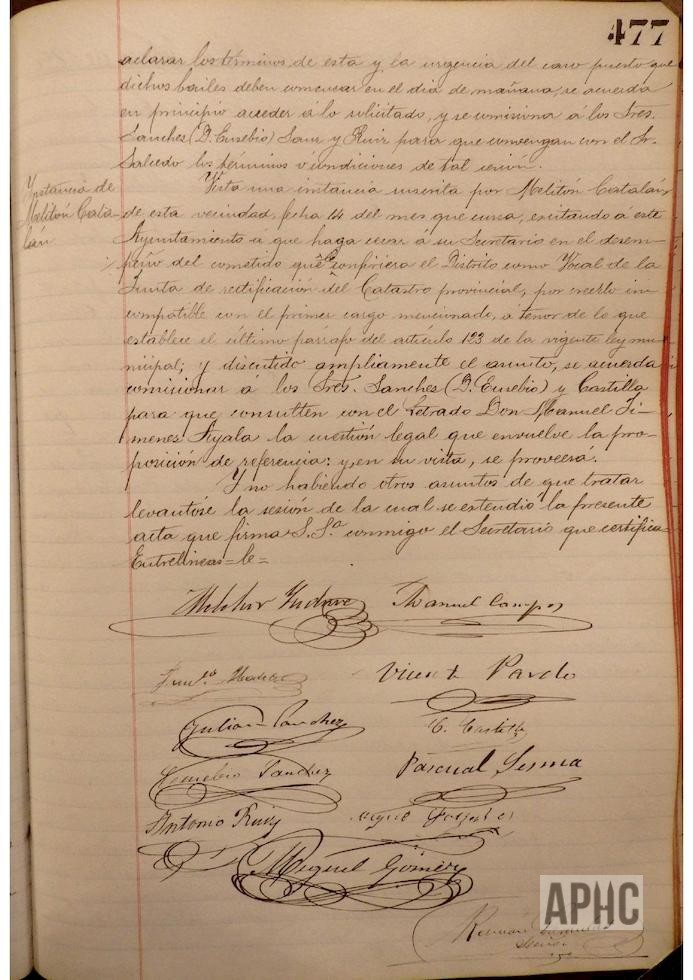 477
aclarar los términos de esta y la urgencia del caso puesto que
dichos bailes deben comenzar en el dia de mañana, se acuerda
en principio acceder á lo solicitado, y se comisiona á los Sres.
Sanches (D. Eusebio) Sanz y Ruiz para que convengan con el Sr.
Salcedo los términos ó condiciones de tal cesión.
Ynstancia de
Melitón Cata-
lán
Vista una instancia suscrita por Melitón Catalán
de esta vecindad, fecha 14 del mes que cursa, excitando á este
Ayuntamiento a que haga cesar á su Secretario en el desem-
peño del cometido que le confiriera el Distrito como Vocal de la
Junta de rectificación del Catastro provincial, por creerlo in
compatible con el primer cargo mencionado, á tenor de lo que
establece el último párrafo del artículo 123 de la vigente ley mu-
nicipal; y discutido ampliamente el asunto, se acuerda
comisionar á los Sres. Sanches (D. Eusebio) y Castilla
para que consulten con el Letrado Don Manuel Ji-
menes Ayala la cuestión legal que envuelve la pro-
posición de referencia: y, en su vista, se proveerá.
Y no habiendo otros asuntos de que tratar
levantóse la sesión de la cual se extendió la presente
acta que firma S. Sª. conmigo el Secretario que certifica=
Entrelineas=le=
Melchor Manuel Campos
Vicente Pardo
Julian Sanchez C. Castilla
Eusebio Sanchez Pascual Sesma
Antonio Ruiz Miguel
Miguel Gómez
APHC